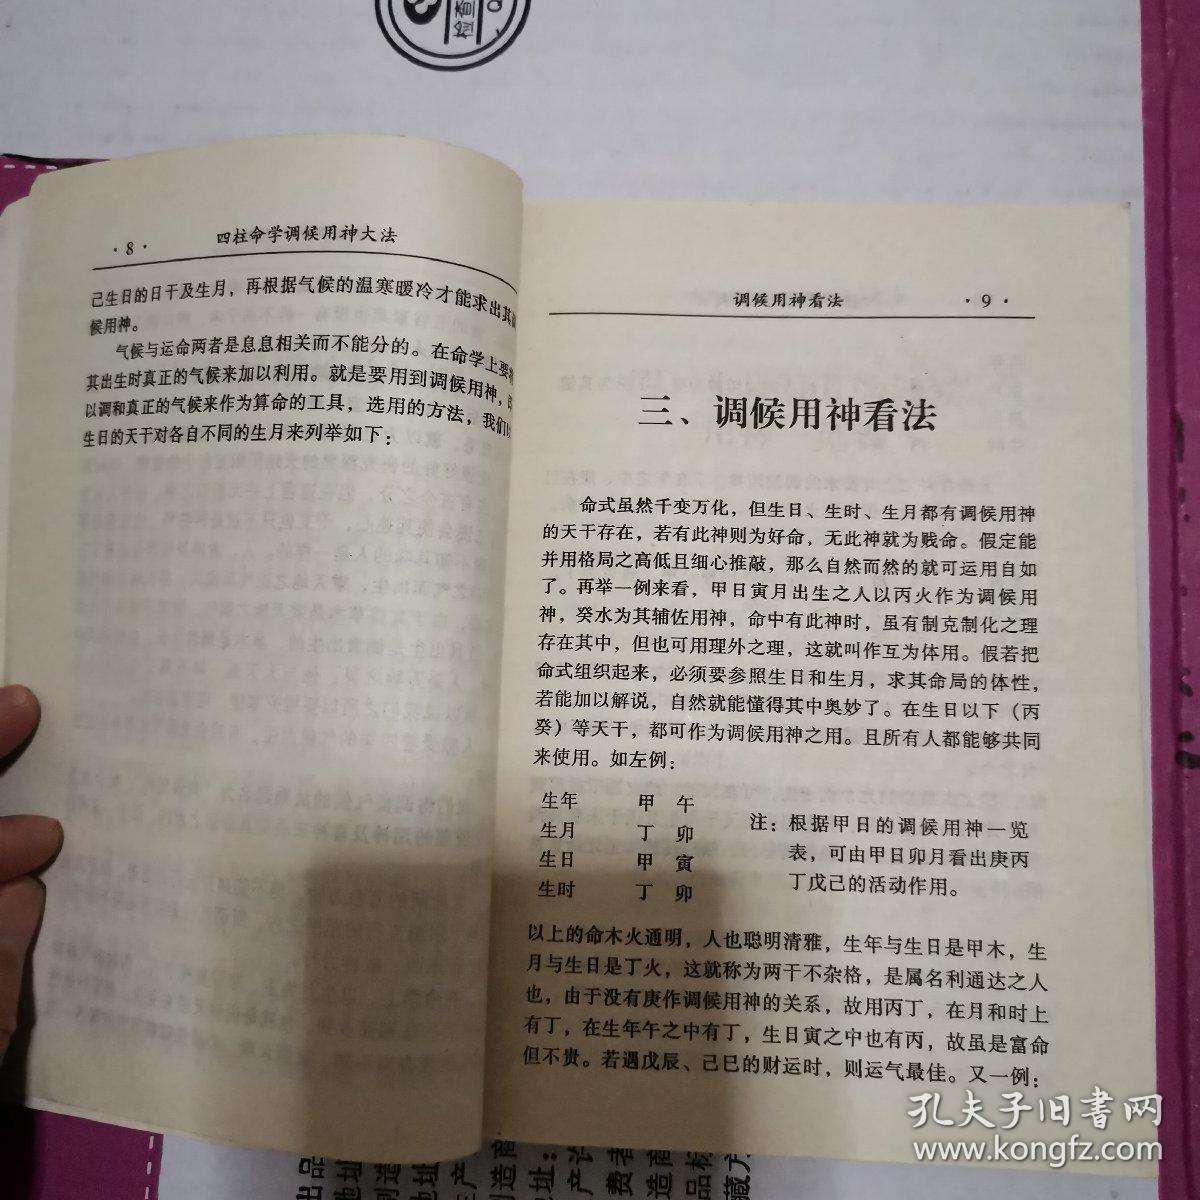 检查
·8· 四柱命学调候用神大法
己生日的日干及生月，再根据气候的温寒暖冷才能求出其
候用神。
气候与运命两者是息息相关而不能分的。在命学上要
其出生时真正的气候来加以利用。就是要用到调候用神，
以调和真正的气候来作为算命的工具，选用的方法，我们
生日的天干对各自不同的生月来列举如下：
调候用神看法 ·9·
三、调候用神看法
命式虽然千变万化，但生日、生时、生月都有调候用神
的天干存在，若有此神则为好命，无此神就为贱命。假定能
并用格局之高低且细心推敲，那么自然而然的就可运用自如
了。再举一例来看，甲日寅月出生之人以丙火作为调候用
神，癸水为其辅佐用神，命中有此神时，虽有制克制化之理
存在其中，但也可用理外之理，这就叫作互为体用。假若把
命式组织起来，必须要参照生日和生月，求其命局的体性，
若能加以解说，自然就能懂得其中奥妙了。在生日以下（丙
癸）等天干，都可作为调候用神之用。且所有人都能够共同
来使用。如左例：
生年 甲 午
生月 丁 卯
生日 甲 寅
生时 丁 卯
注：根据甲日的调候用神一览
表，可由甲日卯月看出庚丙
丁戊己的活动作用。
以上的命木火通明，人也聪明清雅，生年与生日是甲木，生
月与生日是丁火，这就称为两干不杂格，是属名利通达之人
也，由于没有庚作调候用神的关系，故用丙丁，在月和时上
有丁，在生年午之中有丁，生日寅之中也有丙，故虽是富命
但不贵。若遇戊辰、己巳的财运时，则运气最佳。又一例：
孔夫子旧书网
www.kongfz.com